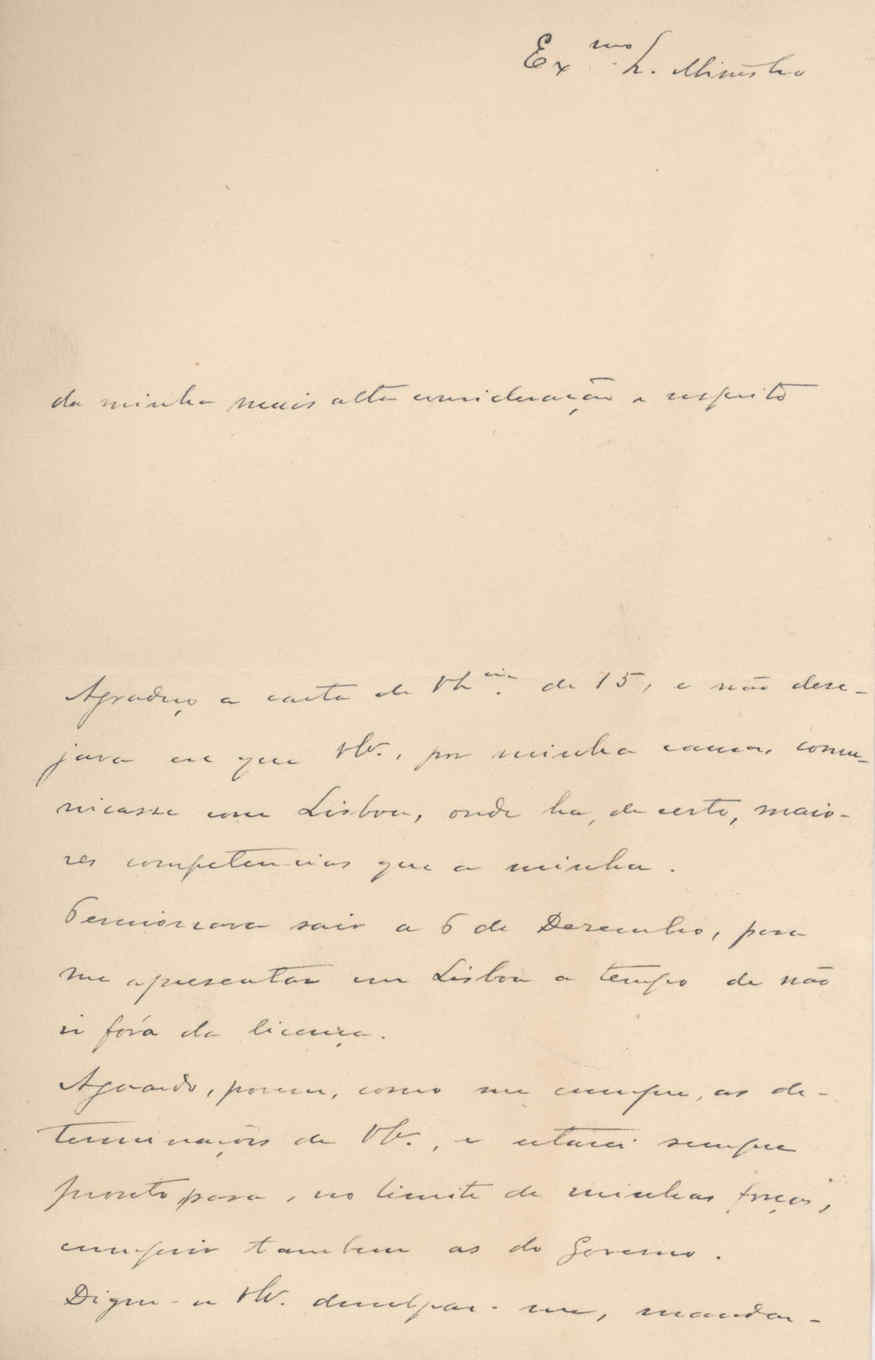 Ex.mo Sr. Ministro
da minha mais alta consideração e respeito
Agradeço a carta de V. Ex.cia de 15, e não dese-
java eu que V. Ex.., por minha causa, comu-
nicasse com Lisboa, onde ha, de certo, maio-
res competencias que a minha.
Tencionava sair a 6 de Dezembro, para
me apresentar em Lisboa a tempo de não
ir fóra da licença.
Aguardo, porem, como me cumpre, as de-
terminações de V. Ex.., e estarei sempre
pronto para, no limite de minhas forças,
cumprir tambem as do Governo.
Digne-se V. Ex.. desculpar-me, mandar-